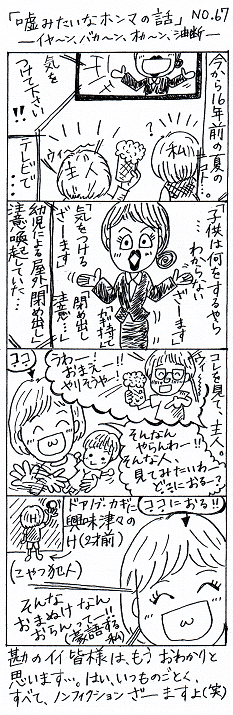 「嘘みたいなホンマの話」NO.67
―イヤ〜ン、バカ〜ン、オカ〜ン、油断―
今から16年前の夏の
コト…。
気を
つけて下さい
!!
私
主人
テレビで
子供は何をするやら
わからない
ざーます
「気をつける
ざーます」
「閉め出し
注意…」
幼児による屋外「閉め出し」
注意喚起していた…
コレを見て、主人。
うわー
おまえ
やりそうやー!!
ココ
そんなん
やらんわー!!
そんな人
見てみたいわー
どこにおる〜?
ココにおる!!
ドアノブ・カギに
興味津々の
け(2才前)
(こやつ犯人)
そんな
おまぬけなん
おらんって〜!!
(豪語する
私)
勘のイイ皆様は、もうおわかりと
思います…。はい、いつものごとく、
すべて、ノンフィクションざーますよ(笑)